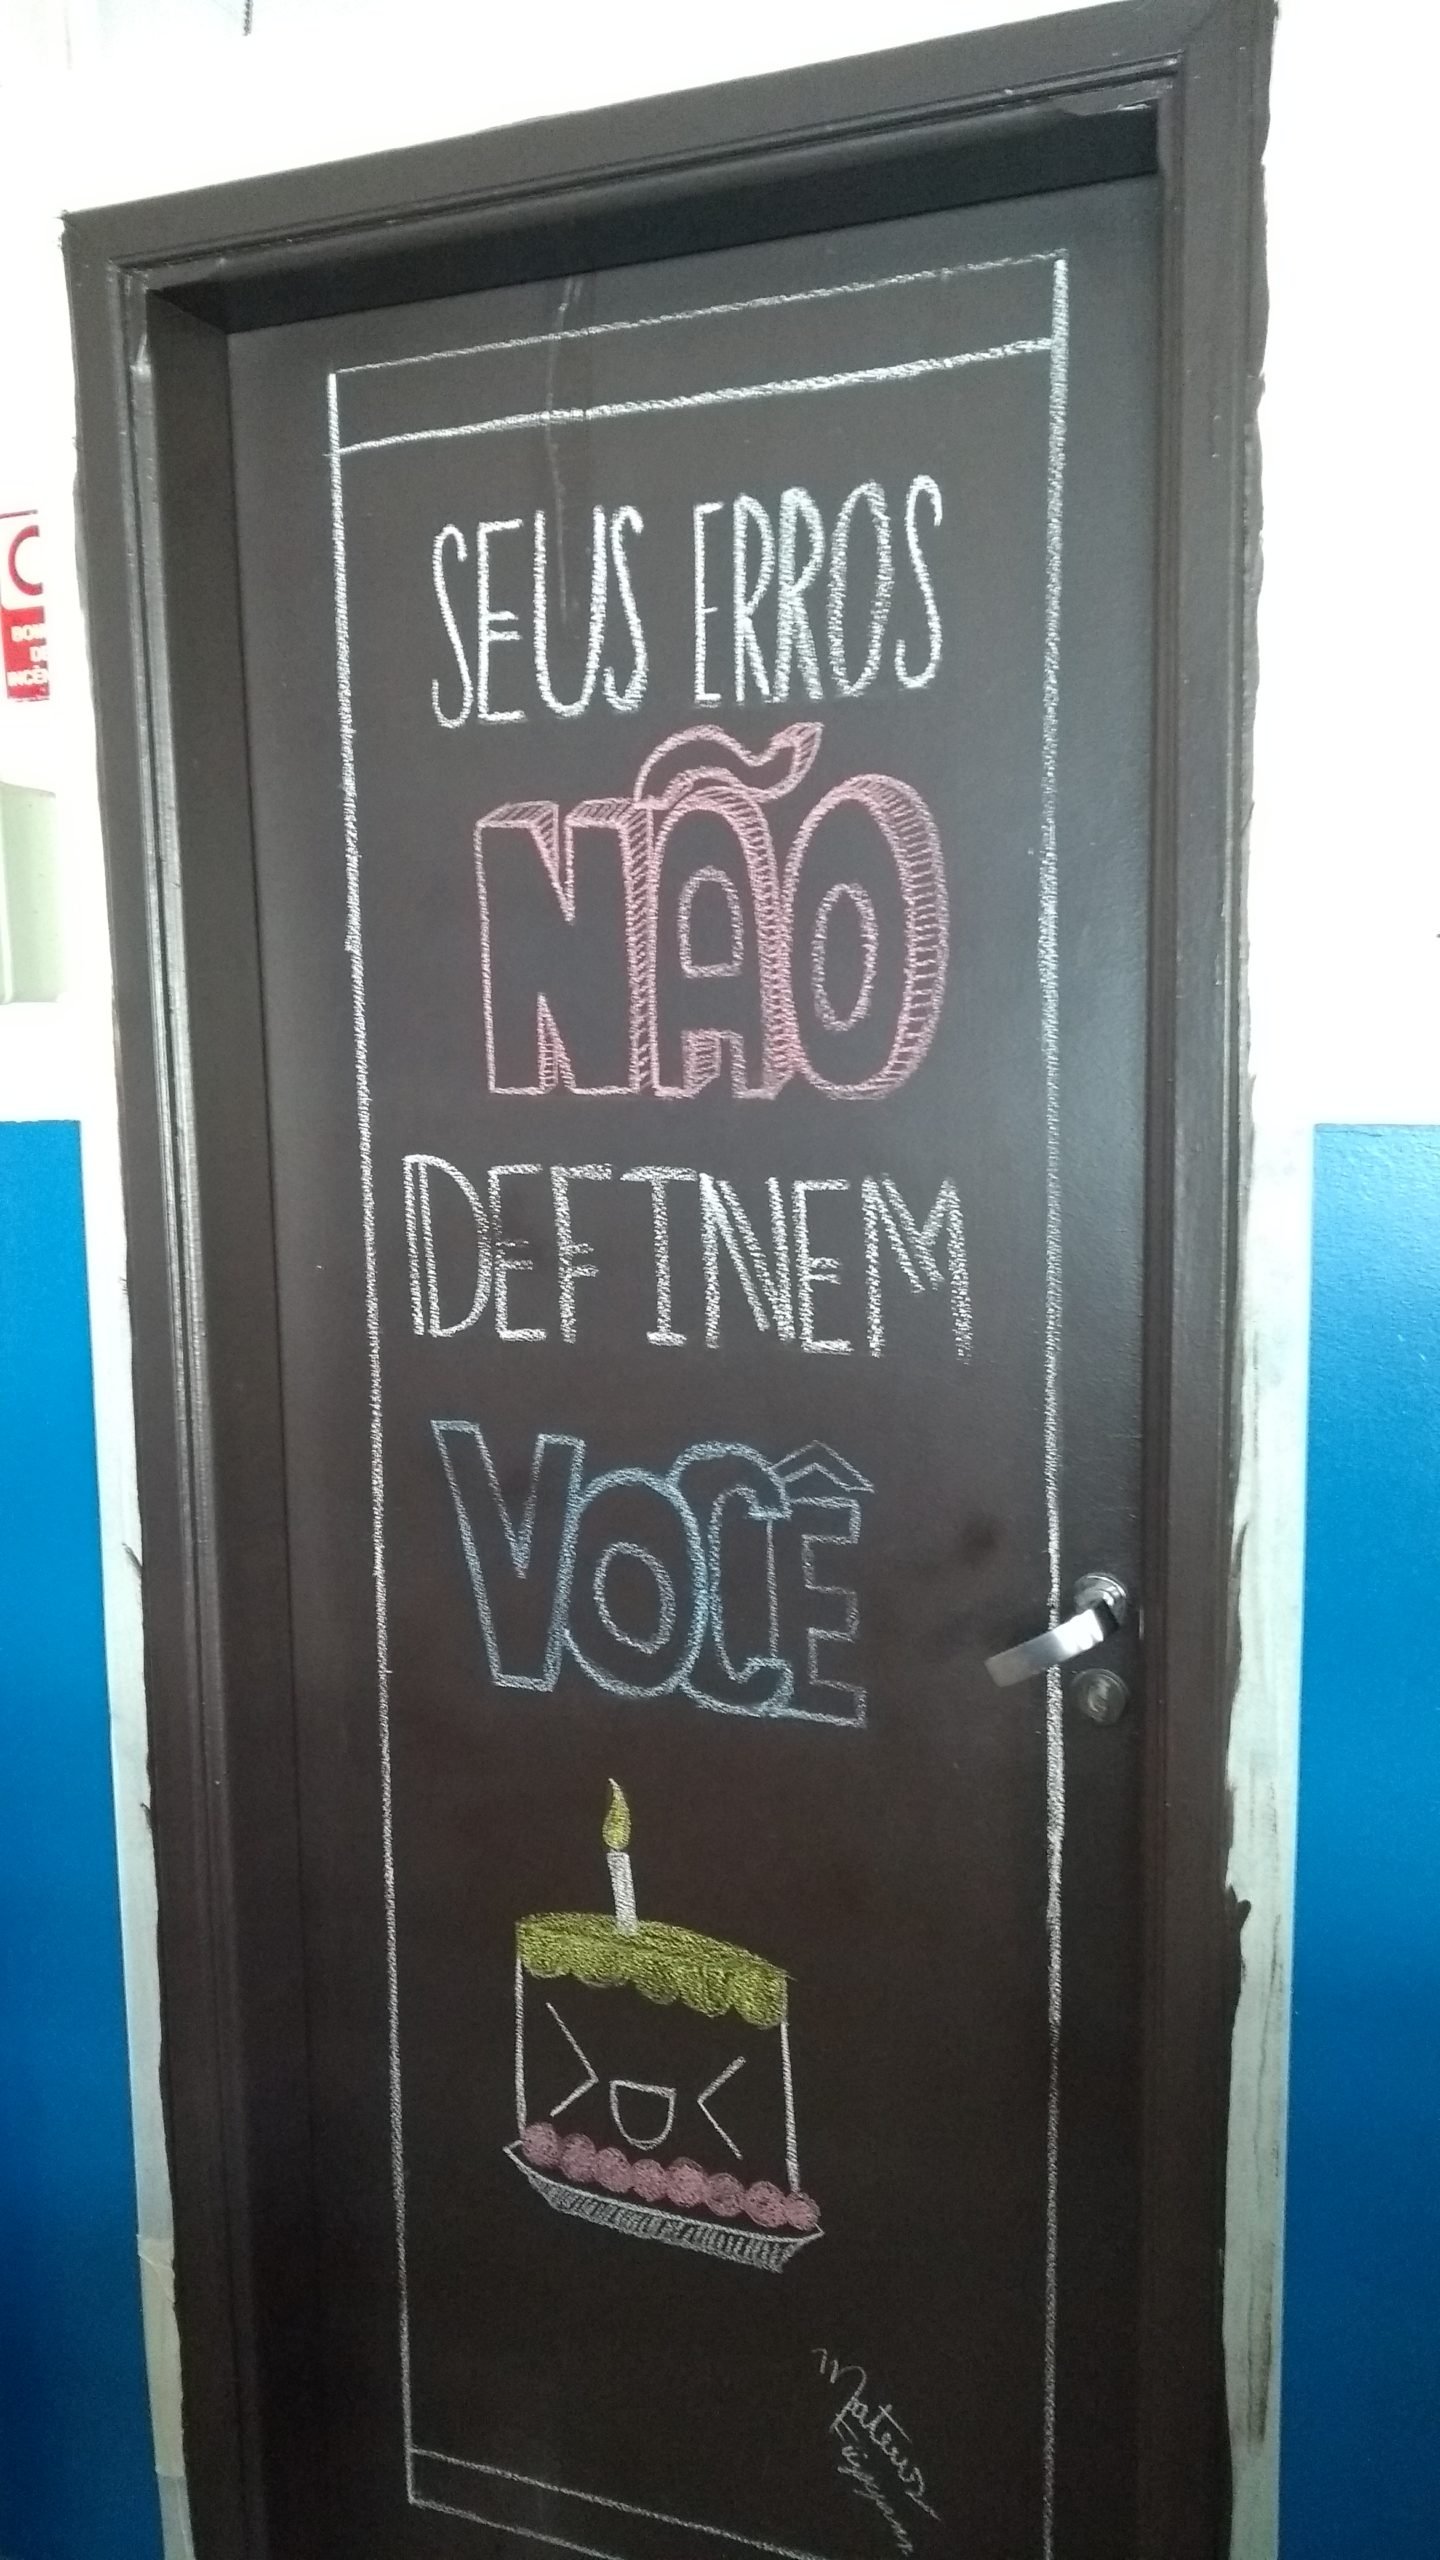 SEUS ERROS
NÃO
DEFINEM
VOCÊ
Mateus